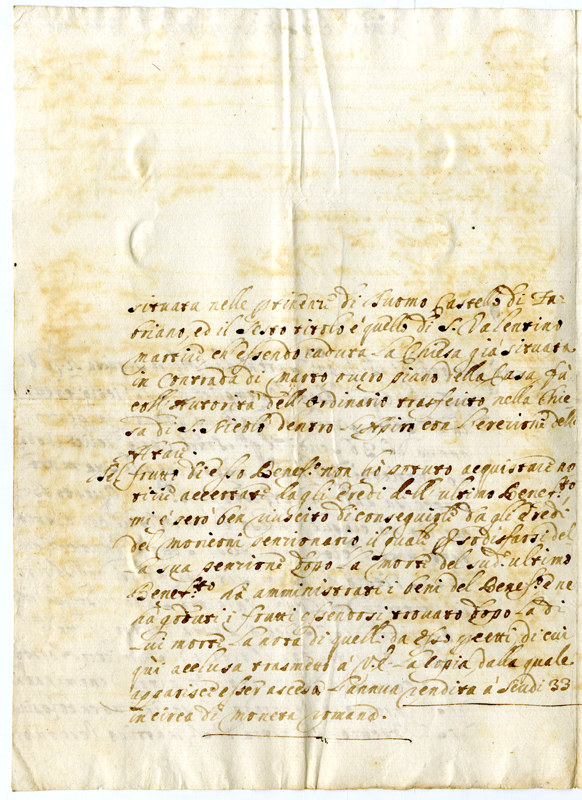 situata nelle pertinenze di Suomo Castello di Fa-
briano ed il sesto titolo è quello di S. Valentino
martire, ch'essendo caduta la Chiesa già situata
in Contrada di Marro overo piano della Casa, fù
coll'Autorità dell'Ordinario trasferito nella Chie
sa di S. Nicolò dentro con l'erezione dell'
Altare.
De frutti di esso Benef.º non hò potuto acquistarne no
titie accertate dagli Eredi dell'ultimo Benef.to
mi è però ben riuscito di conseguirle dagli Eredi
del Moricone penzionario il quale p sodisfarsi del
la sua penzione dopo la morte del sud.º ultimo
Benef.to hà amministrati i beni del Benef.º e ne
hà goduti i frutti essendosi trovato dopo la di
lui morte la nota di quelli da esso di cui
quì acclusa trasmetto à V.S. la Copia dalla quale
apparisce esser ascesa l'annua rendita à Scudi 33
in circa di moneta romana.